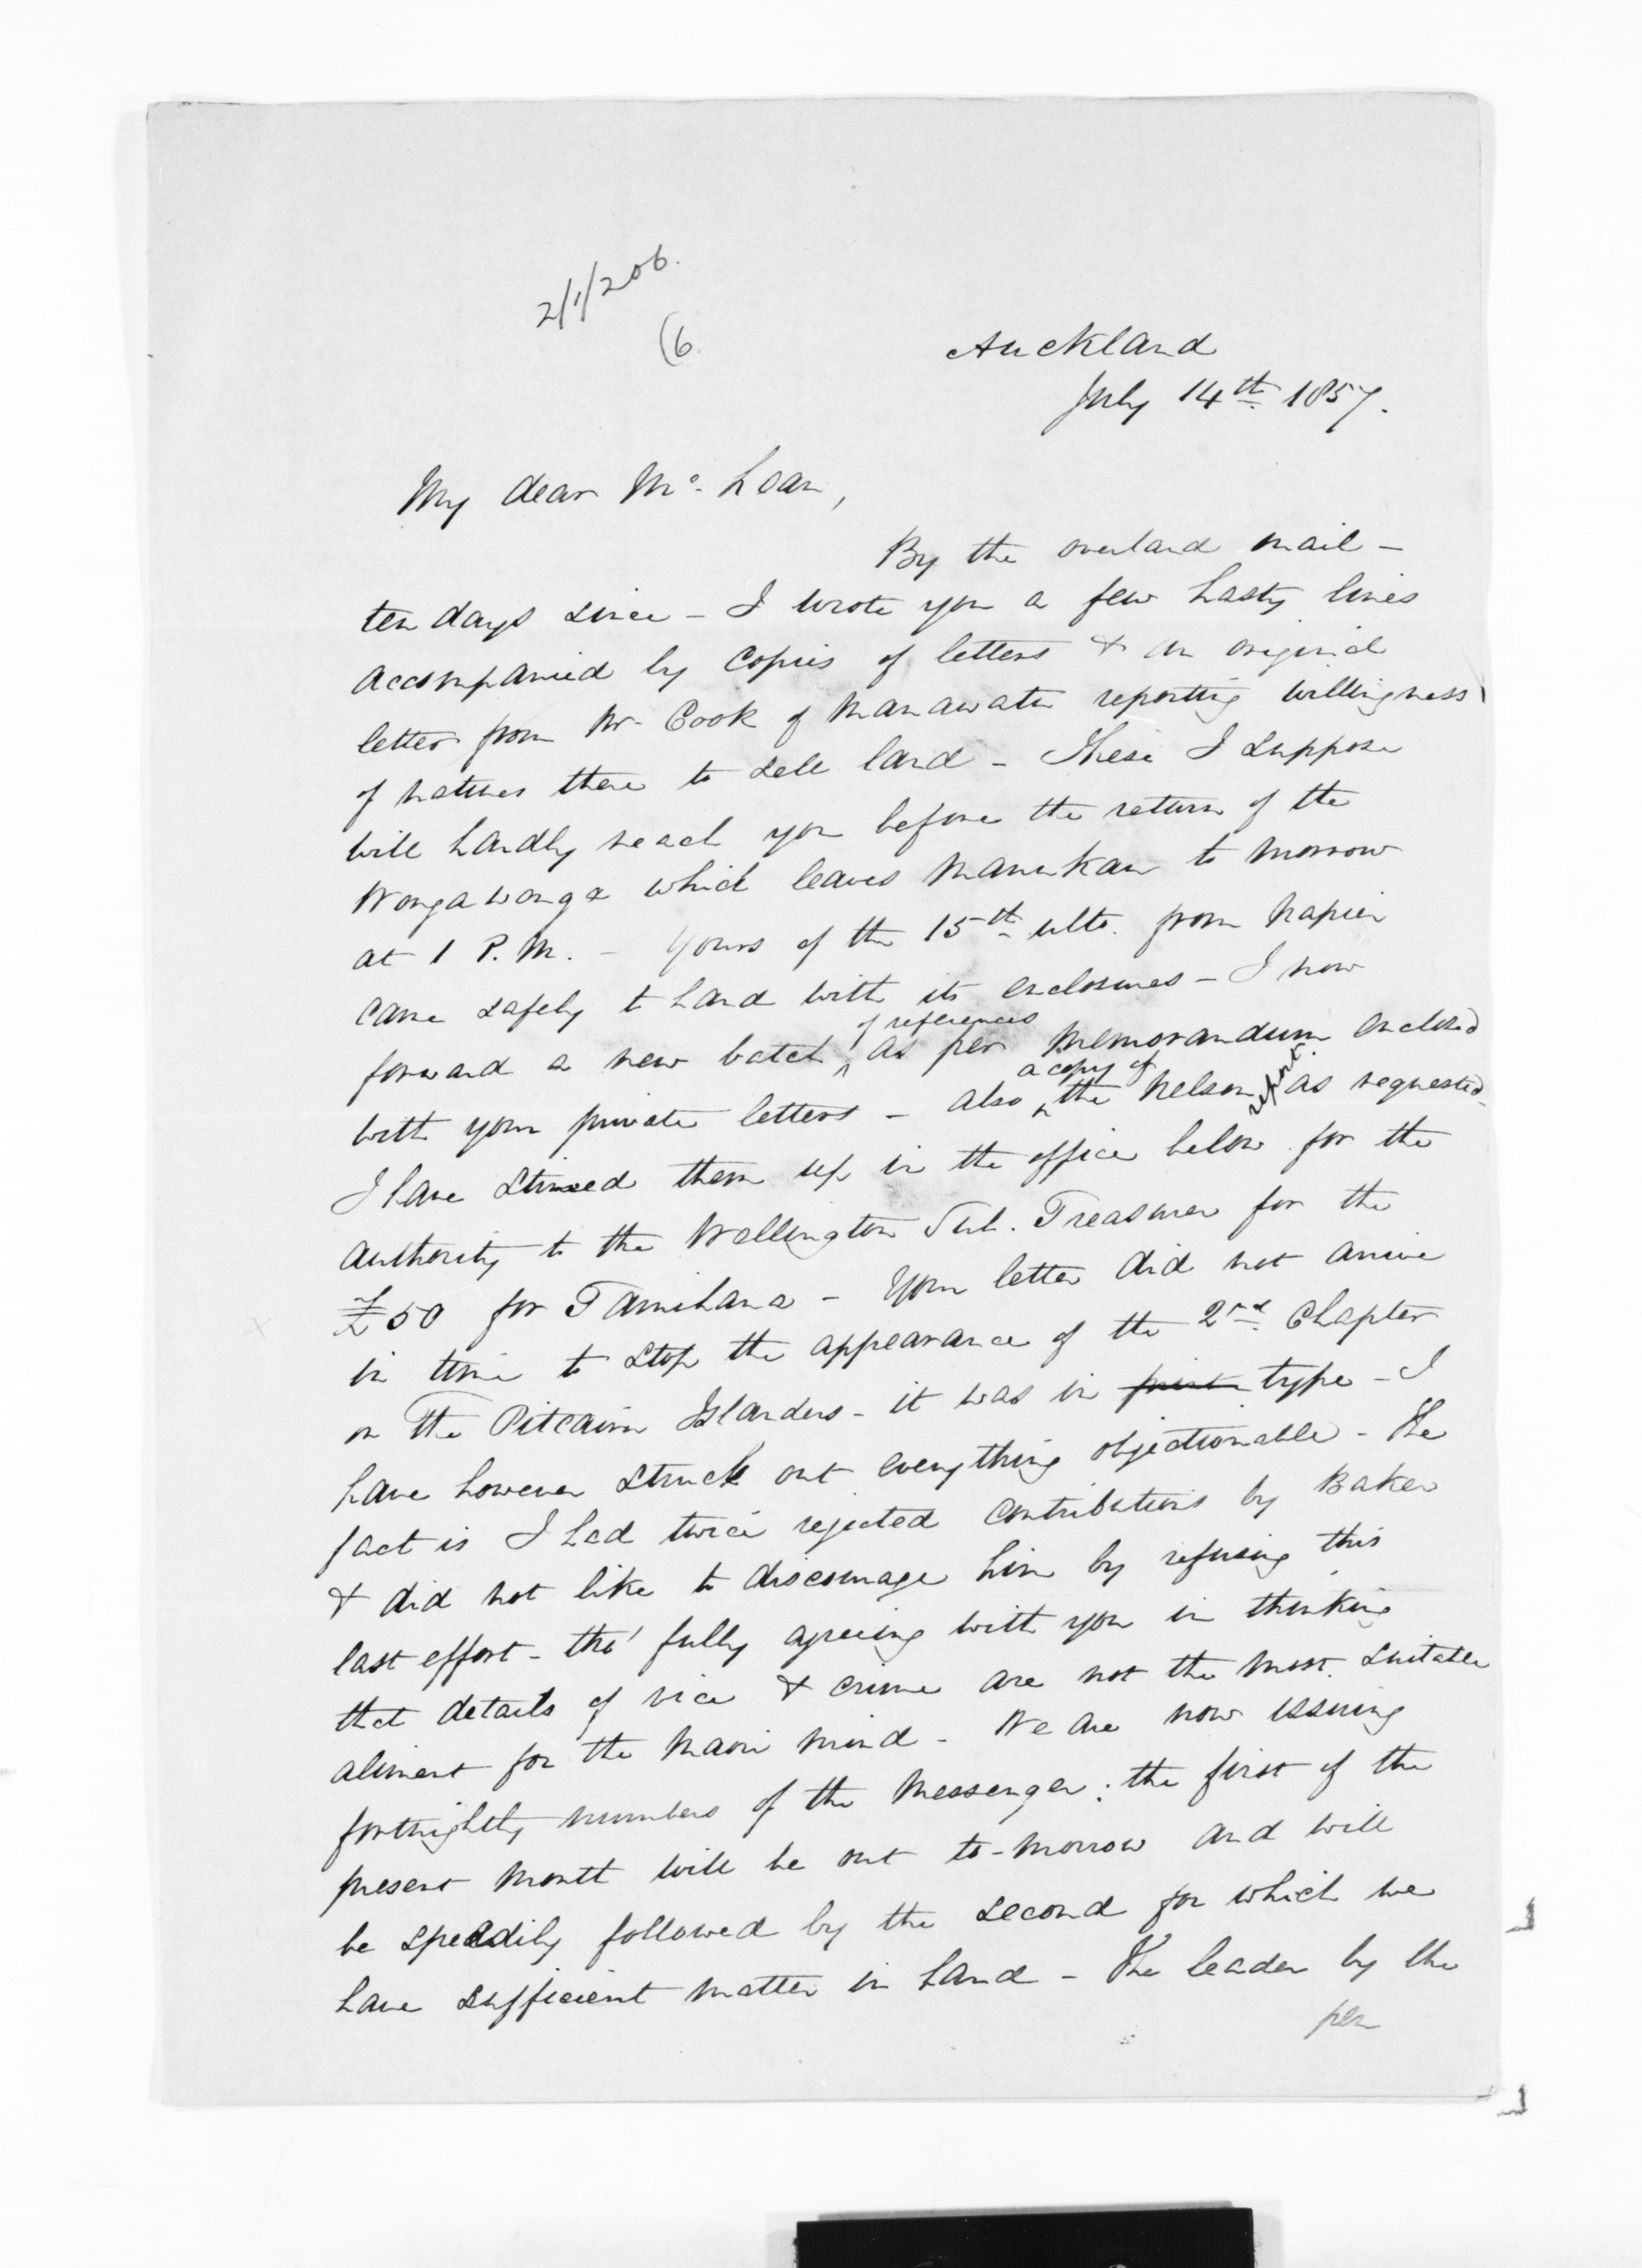 2/1/206.
(6.
Auckland
July 14th. 1857.
My dear Mc. Lean,
By the overland mail -
ten days since - I wrote you a few hasty lines
accompanied by copies of letters & an original
letter from Mr. Cook of Manawatu reporting willingness
of natives there to sell land - These I suppose
will hardly reach you before the return of the
Wonga Wonga which leaves Manukau to morrow
at 1 P.M. - Yours of the 15th ulto. from Napier
came safely to hand with its enclosures - I now
of references
forward a new batch ^ as per memorandum enclosed
a copy of
with your private letters - also ^ the Nelson report as requested.
I have stirred them up in the office below for the
authority to the Wellington Sub. Treasurer for the
£50 for Tamihana - Your letter did not arrive
in time to stop the appearance of the 2nd. Chapter
on The Pitcairn Islanders - it was in print type - I
have however struck out everything objectionable - The
fact is I had twice rejected contributions by Baker
& did not like to discourage him by refusing this
last effort - tho' fully agreeing with you in thinking
that details of vice & crime are not the most suitable
aliment for the Maori mind - We are now issuing
fortnightly numbers of the Messenger: the first of the
present month will be out to-morrow and will
be speedily followed by the second for which we
have sufficient matter in hand - The leader by the
pen